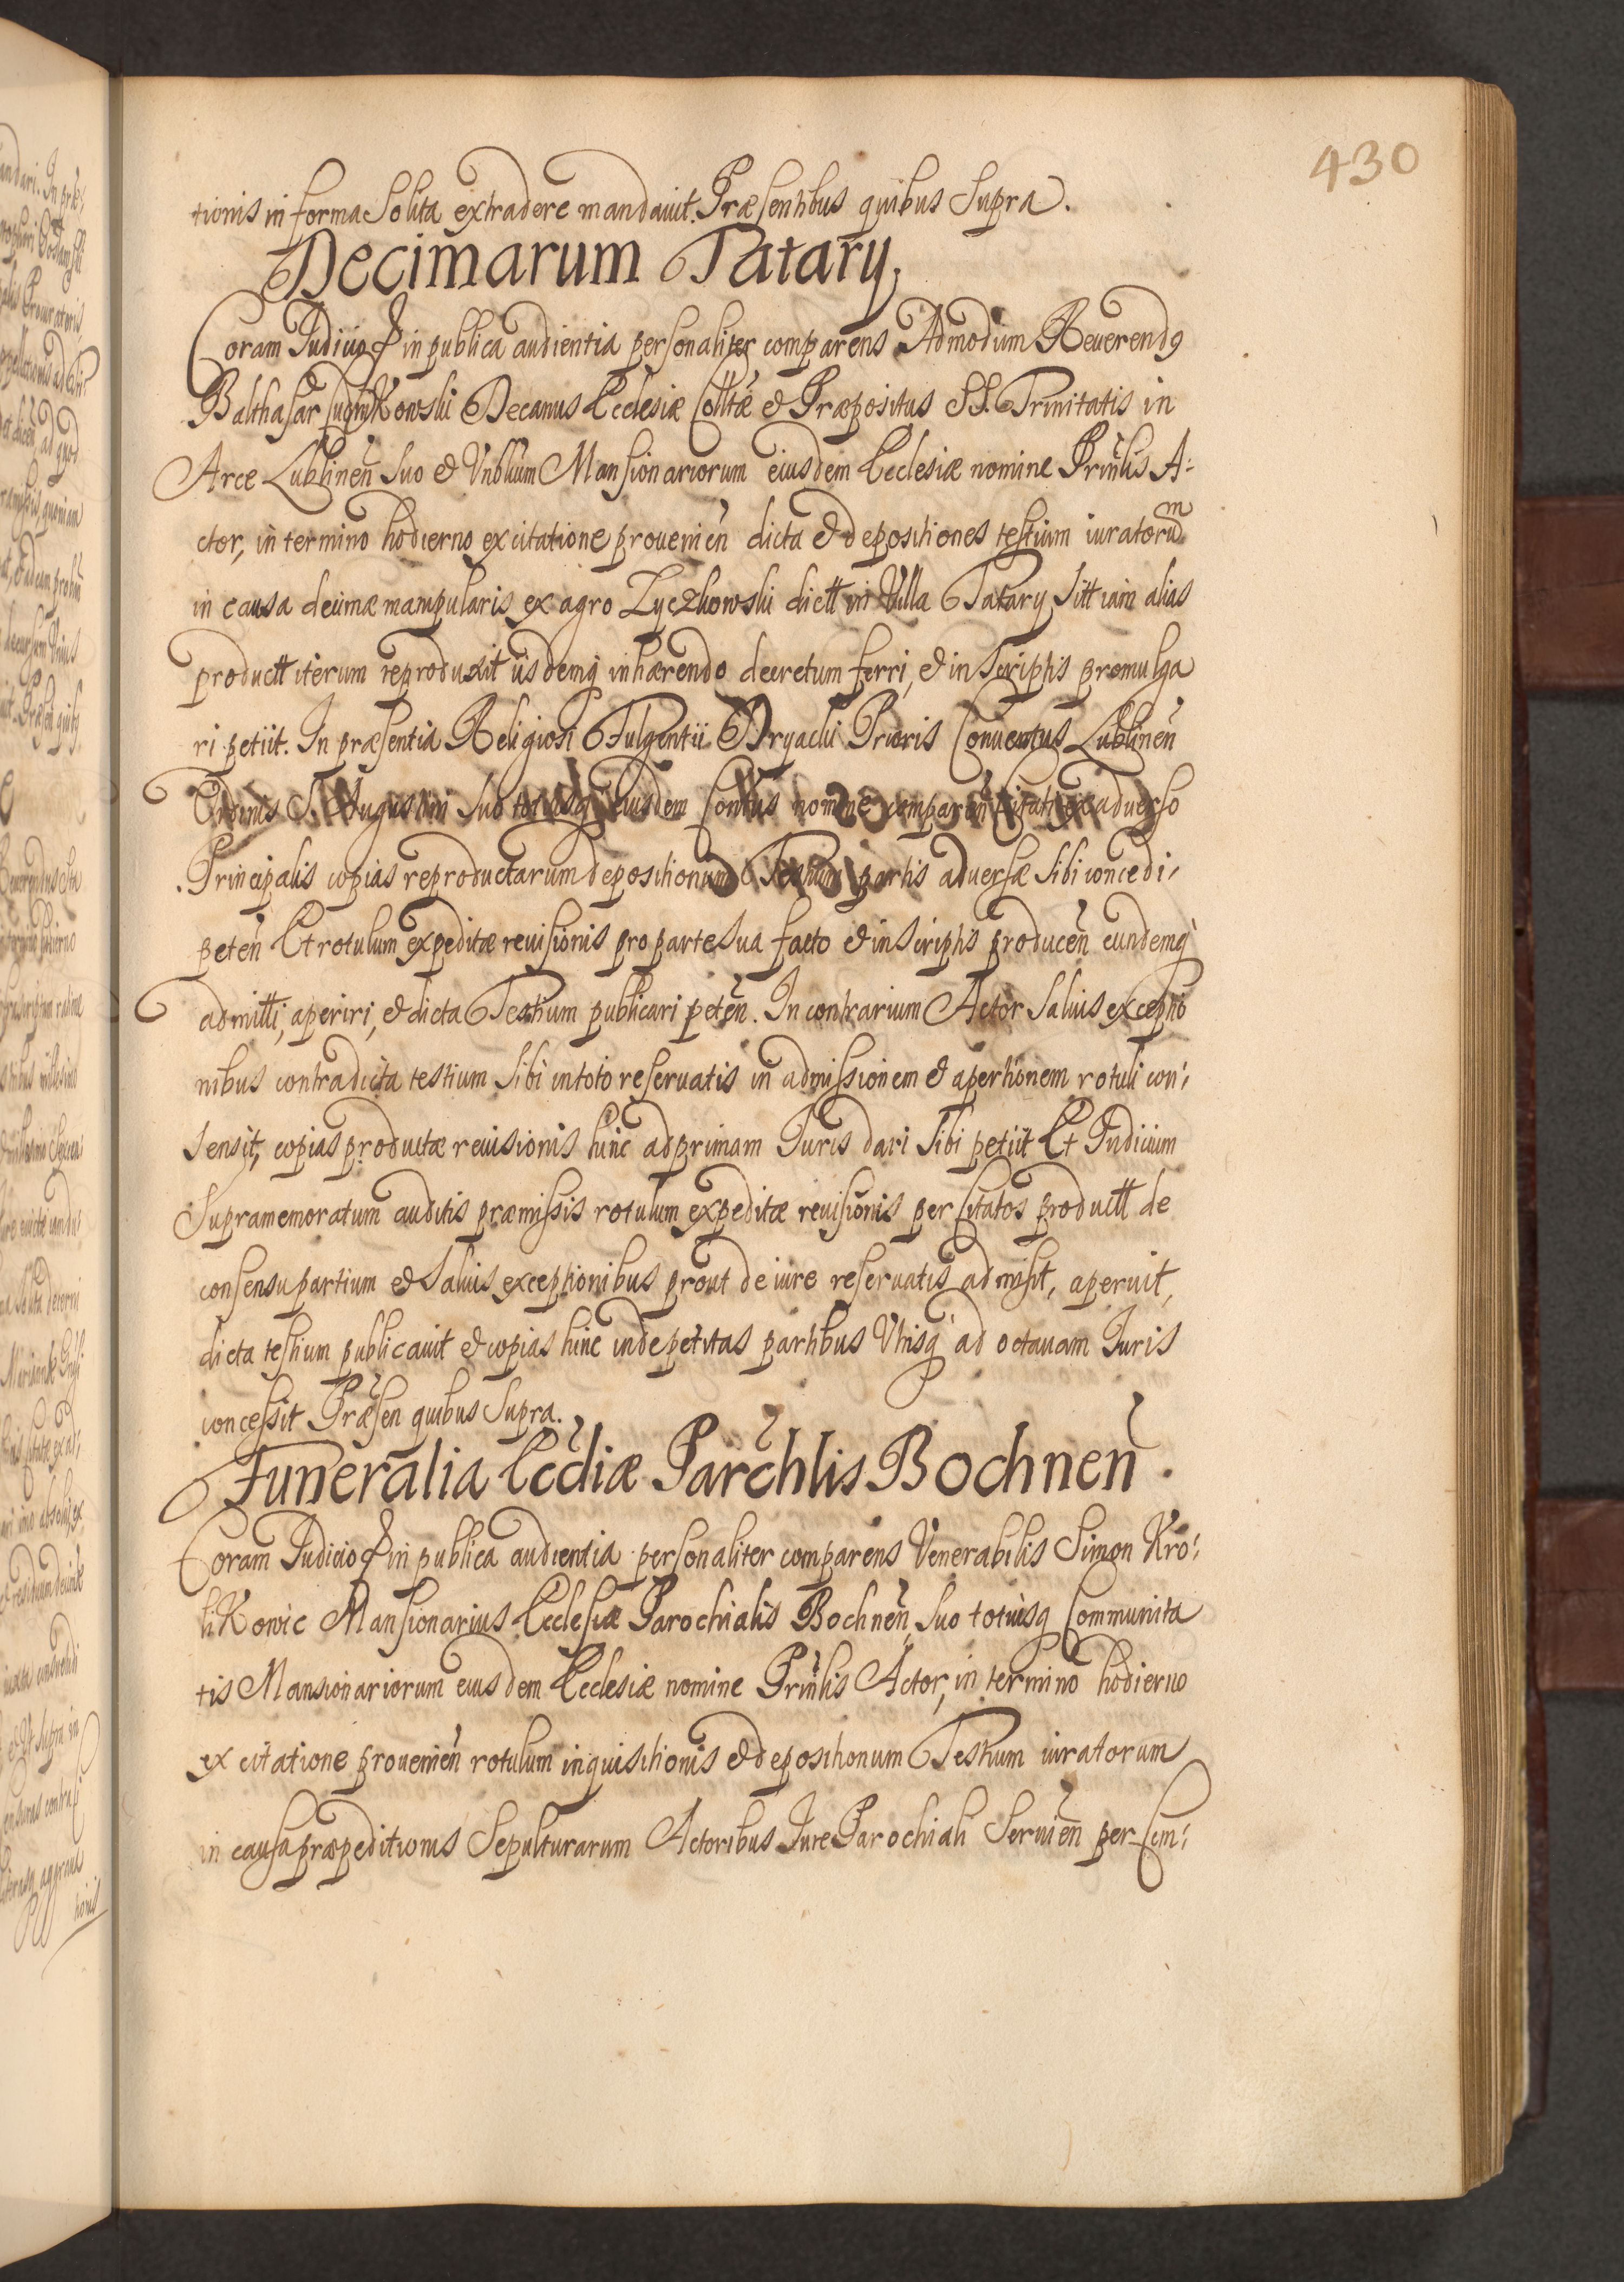 430
tionis in forma Solita extradere mandauit. Præsentibus quibus Supra.
Decimarum Tatary,
Coram Judicio & in publica audientia personaliter comparens Admodum Reuerendꝯ
Balthasar Decanus Ecclesiæ Colltæ & Præpositus SS. Trinitatis in
Arce Lublineñ Suo & Vnbilium Mansionariorum eiusdem Ecclesiæ nomine Prinlis A:
ctor, in termino hodierno ex citatione prouenieñ dicta & depositiones testium iuratorum
in causa decimæ manipularis ex agro Zyczkowski dictt in Villa Tatary Sitt iam alias
productt iterum reproduxit iisdemq inhærendo decretum ferri, & in Scriptis promulga
ri petiit. In præsentia Religiosi Fulgentii Dryacki Prioris Conuentus Lublineñ
Ordinis S. Augustini Suo totiusq eiusdem Contus nomine compareñ Citati ex aduerso
Principalis copias reproductarum depositionum Testium partis aduersæ Sibi concedi,
peteñ Et rotulum expeditæ reuisionis pro parte Sua facto & in Scriptis produceñ eundemq
admitti, aperiri, & dicta Testium publicari peteñ. In contrarium Actor Saluis exceptio
nibus contra dicta testium Sibi in toto reseruatis in admissionem & apertionem rotuli con,
sensit, copias productæ reuisionis hinc ad primam Juris dari Sibi petiit Et Judicium
Supramemoratum auditis præmissis rotulum expeditæ reuisionis per Citatos productt de
consensu partium & Saluis exceptionibus prout de iure reseruatis admisit, aperuit,
dicta testium publicauit & copias hinc inde petitas partibus Vtrisq ad octauam Juris
concessit Præseñ quibus Supra.
Funeralia Ecdiæ Parchlis Bochneñ.
Coram Judicio & in publica audientia personaliter comparens Venerabilis Simon Kro,
liKowic Mansionarius Ecclesiæ Parochialis Bochneñ, Suo totiusq Communita
tis Mansionariorum eiusdem Ecclesiæ nomine Prinlis Actor, in termino hodierno
ex citatione prouenieñ rotulum inquisitionis & depositionum Testium iuratorum
in causa præpeditionis Sepulturarum Actoribus Jure Parochiali Seruieñ per Com,